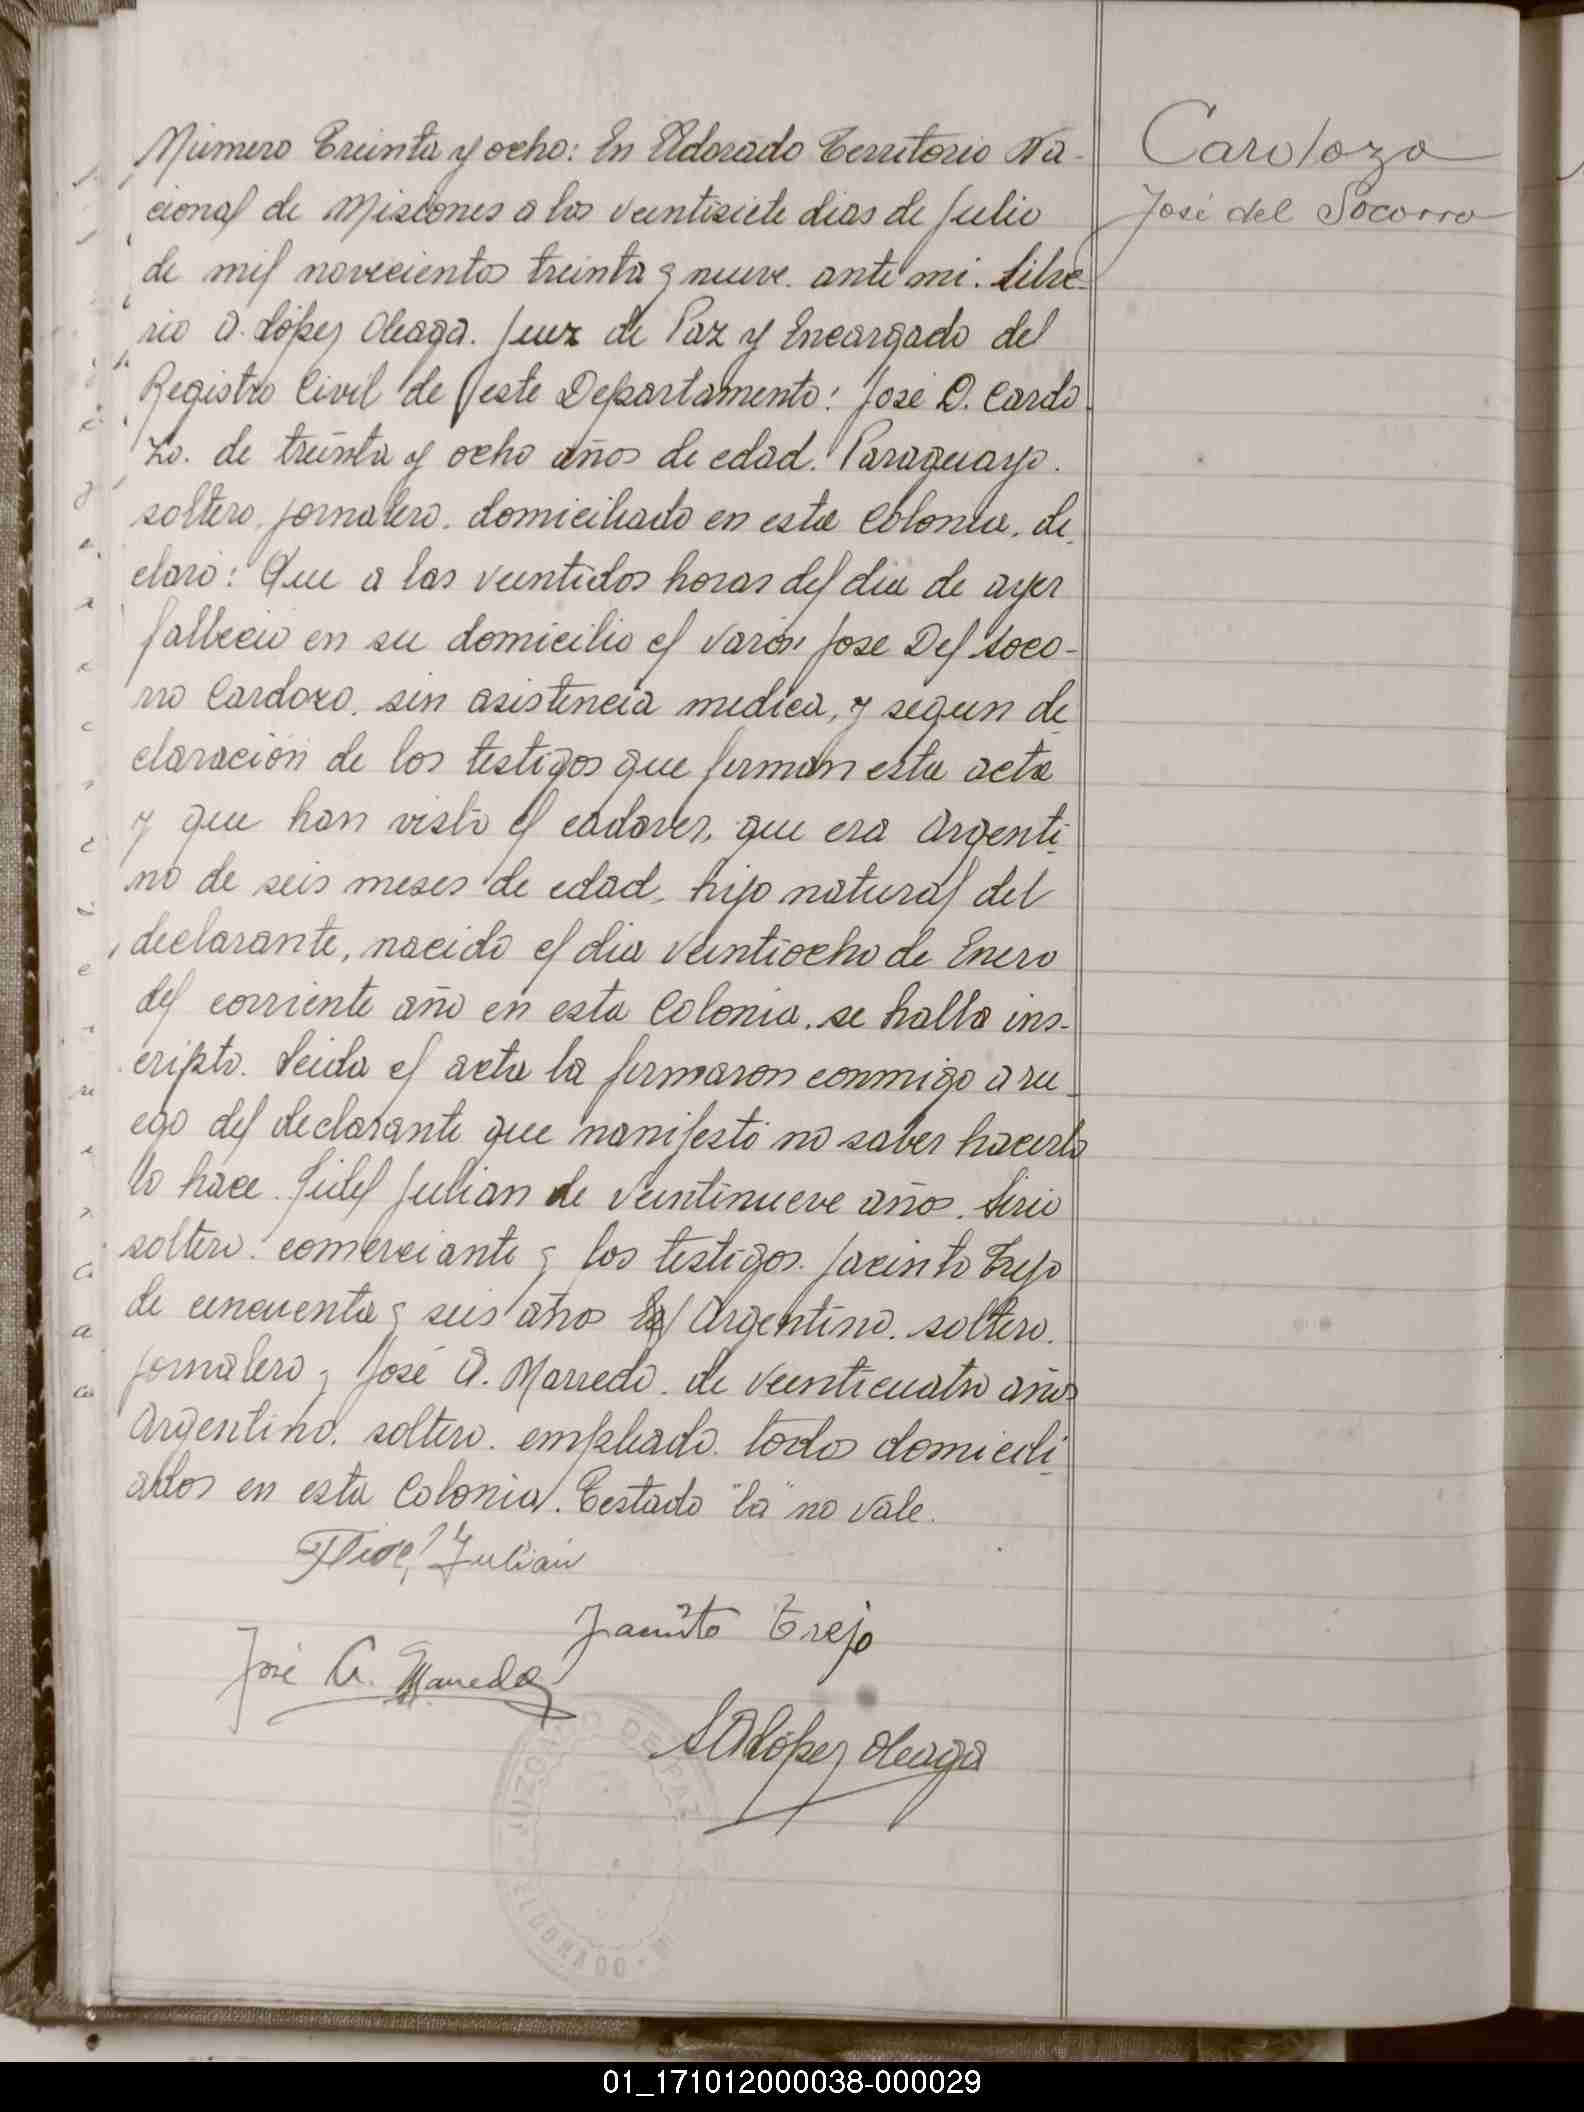 Número Treinta y ocho: En Eldorado Territorio Na-
cional de Misiones a los veintisiete dias de Julio
de mil novecientos treinta y nueve. ante mi. Silve-
rio A. López Oleaga. Juez de Paz y Encargado del
Registro Civil de este Departamento: José D. Cardo
zo. de treinta y ocho años de edad. Paraguayo.
soltero, jornalero. domiciliado en esta Colonia, de
claró: Que a las veintidos horas del dia de ayer
fallecio en su domicilio el varón Jose Del Soco-
rro Cardozo, sin asistencia medica, y segun de
claración de los testigos que firman esta acta
y que han visto el cadaver, que era Argenti
no de seis meses de edad, hijo natural del
declarante, nacido el dia veintiocho de Enero
del corriente año en esta Colonia, se halla ins-
cripto. Leida el acta la firmaron conmigo a ru
ego del declarante que manifestó no saber hacerlo
lo hace. Fidel Julian de veintinueve años. Sirio
soltero. comerciante y los testigos. Jacinto Trejo
de cincuenta y seis años Argentino. soltero.
jornalero y José A. Marredo. de veinticuatro años
Argentino. soltero. empleado. todos domicili
ados en esta Colonia. Testado "la" no vale.
Julian
Jacinto Trejo
José A.
S A López Oleaga
JUZGADO DE PAZ
ELDORADO
Cardozo
José del Socorro
01_171012000038-000029